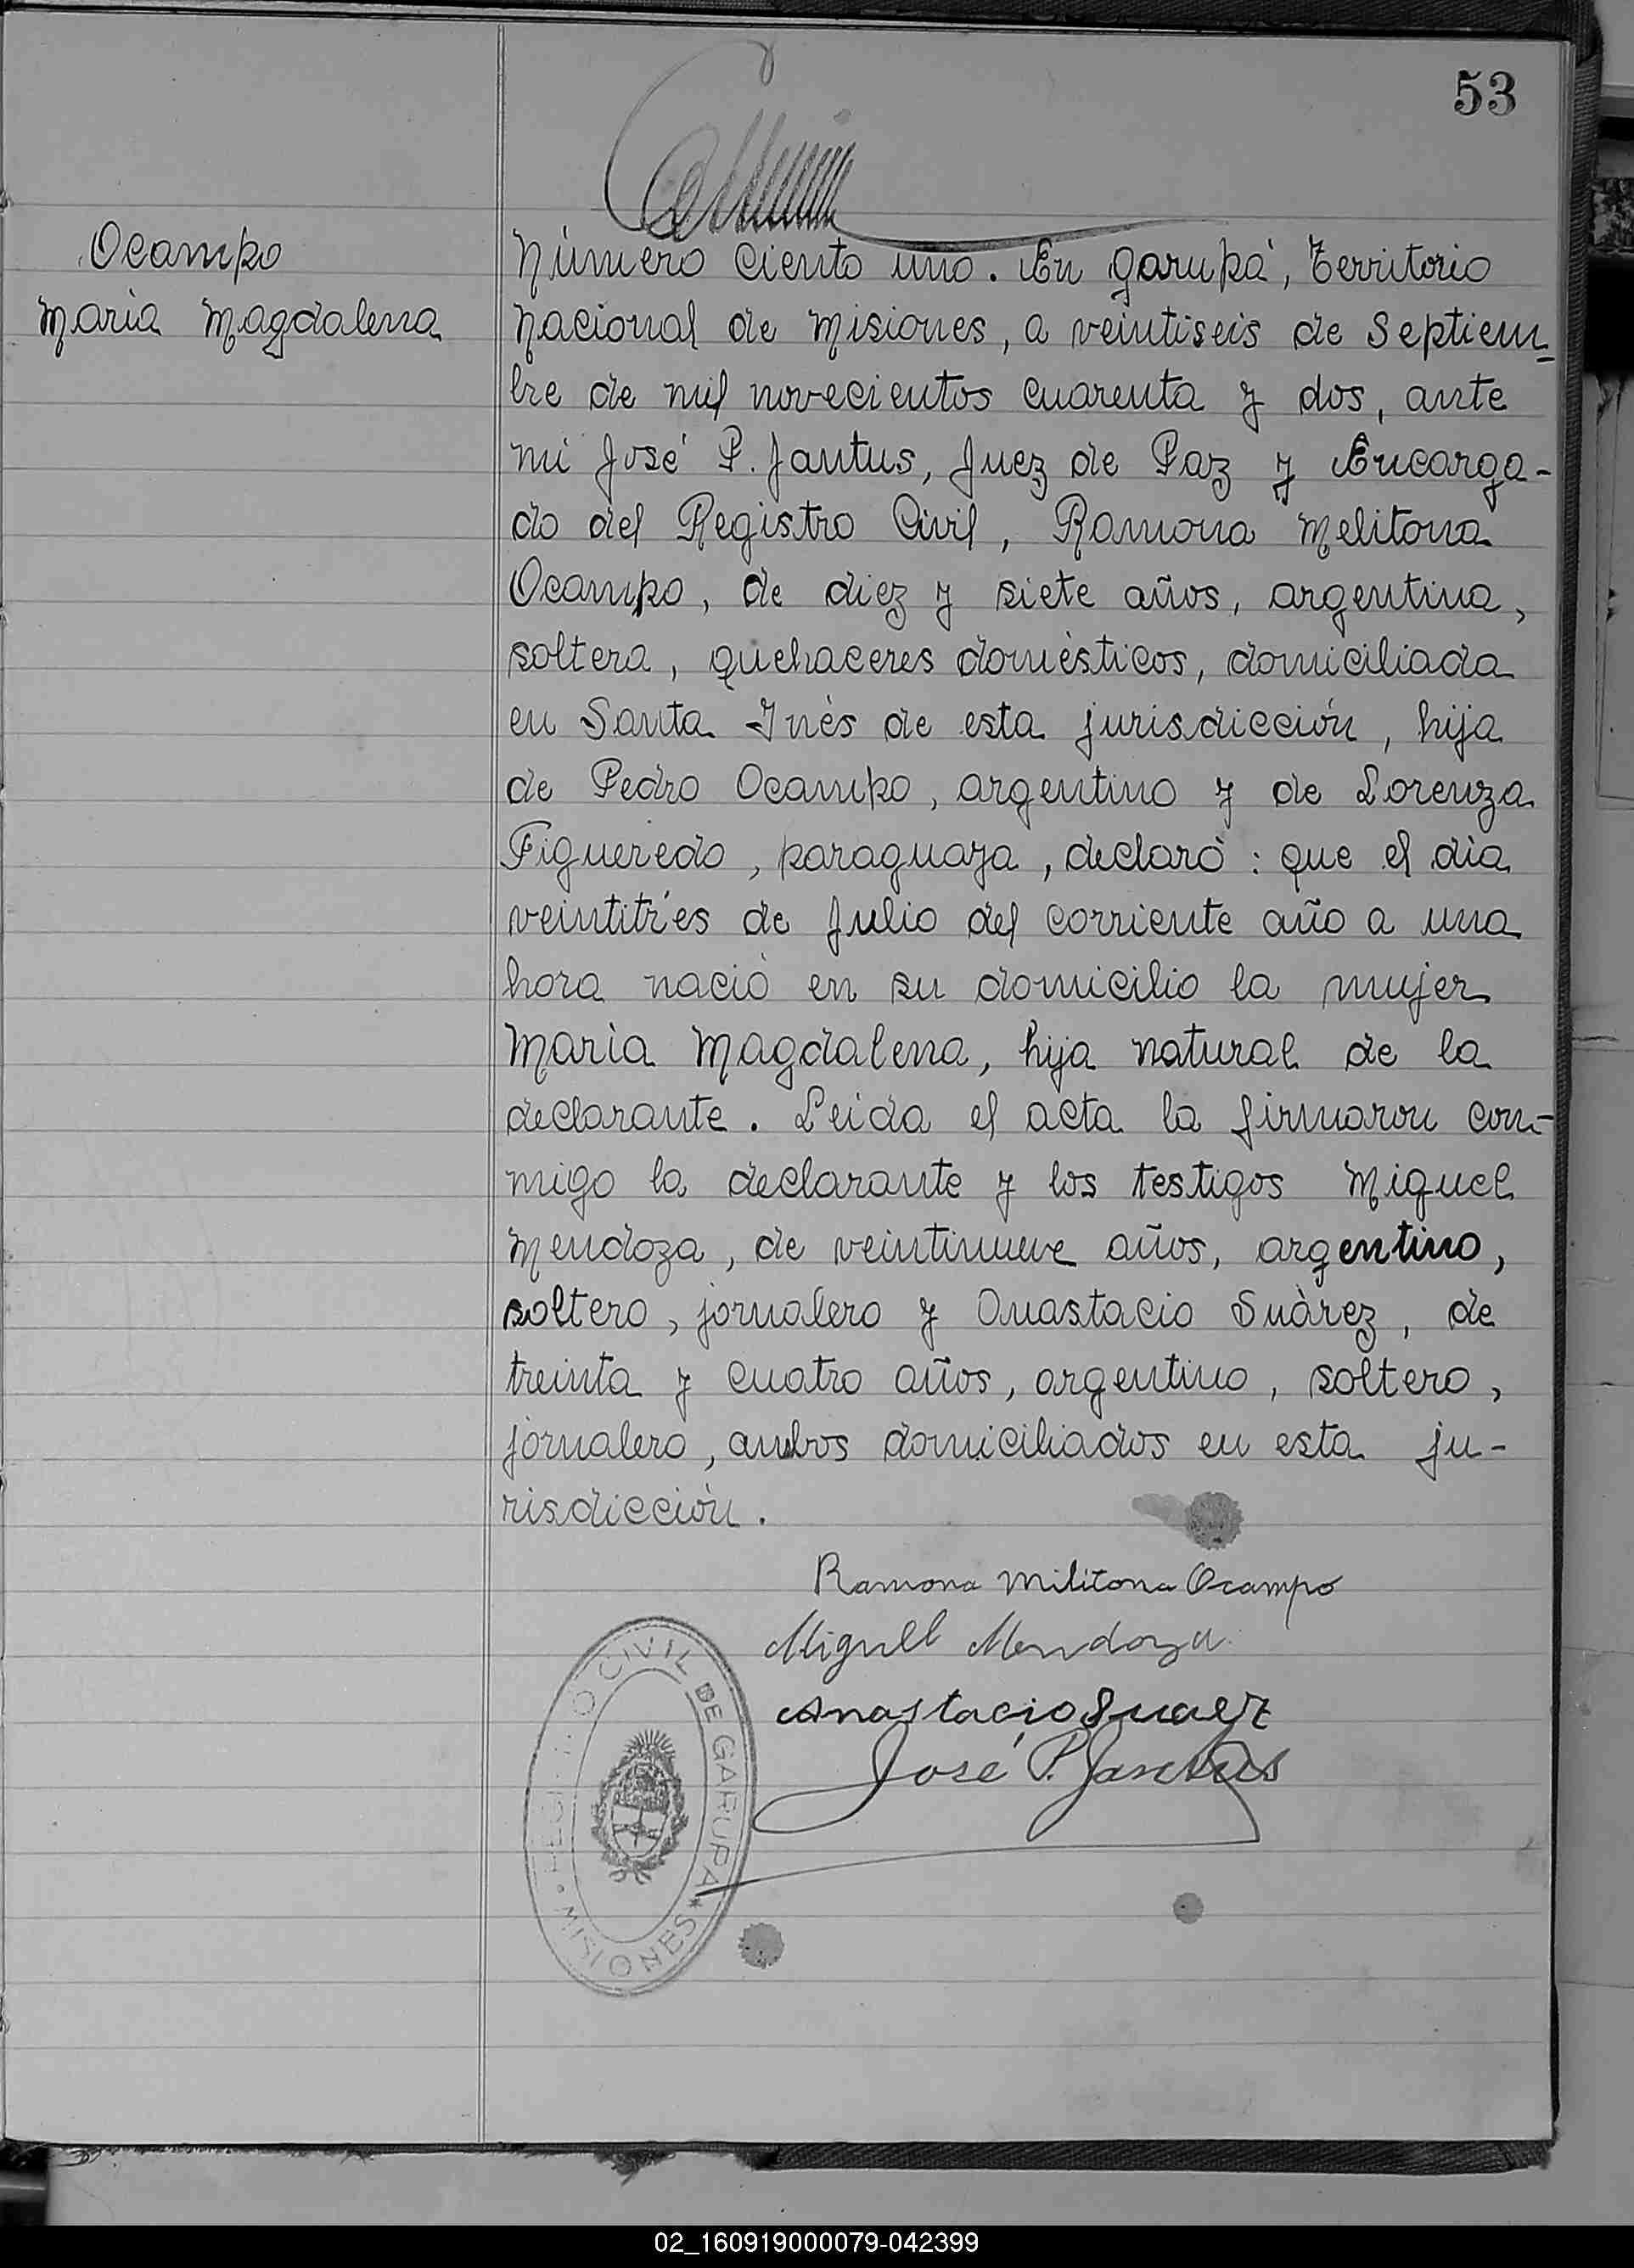 53
Ocampo
Maria Magdalena
Número ciento uno. En Garupá, Territorio
Nacional de Misiones, a veintiseis de Septiem-
bre de mil novecientos cuarenta y dos, ante
mi José P. Jantus, Juez de Paz y Encarga-
do del Registro Civil, Ramona Melitona
Ocampo, de diez y siete años, argentina,
soltera, quehaceres domésticos, domiciliada
en Santa Inés de esta jurisdicción, hija
de Pedro Ocampo, argentino y de Lorenza
Figueredo, paraguaya, declaró: que el día
veintitrés de Julio del corriente año a una
hora nació en su domicilio la mujer
María Magdalena, hija natural de la
declarante. Leida el acta la firmaron con-
migo la declarante y los testigos Miguel
Mendoza, de veintinueve años, argentino,
soltero, jornalero y Anastacio Suárez, de
treinta y cuatro años, argentino, soltero,
jornalero, ambos domiciliados en esta ju-
risdicción.
Ramona Militona Ocampo
Miguel Mendoza
Anastacio Suaez
José P. Jantus
CIVIL DE GARUPA * MISIONES
02_160919000079-042399